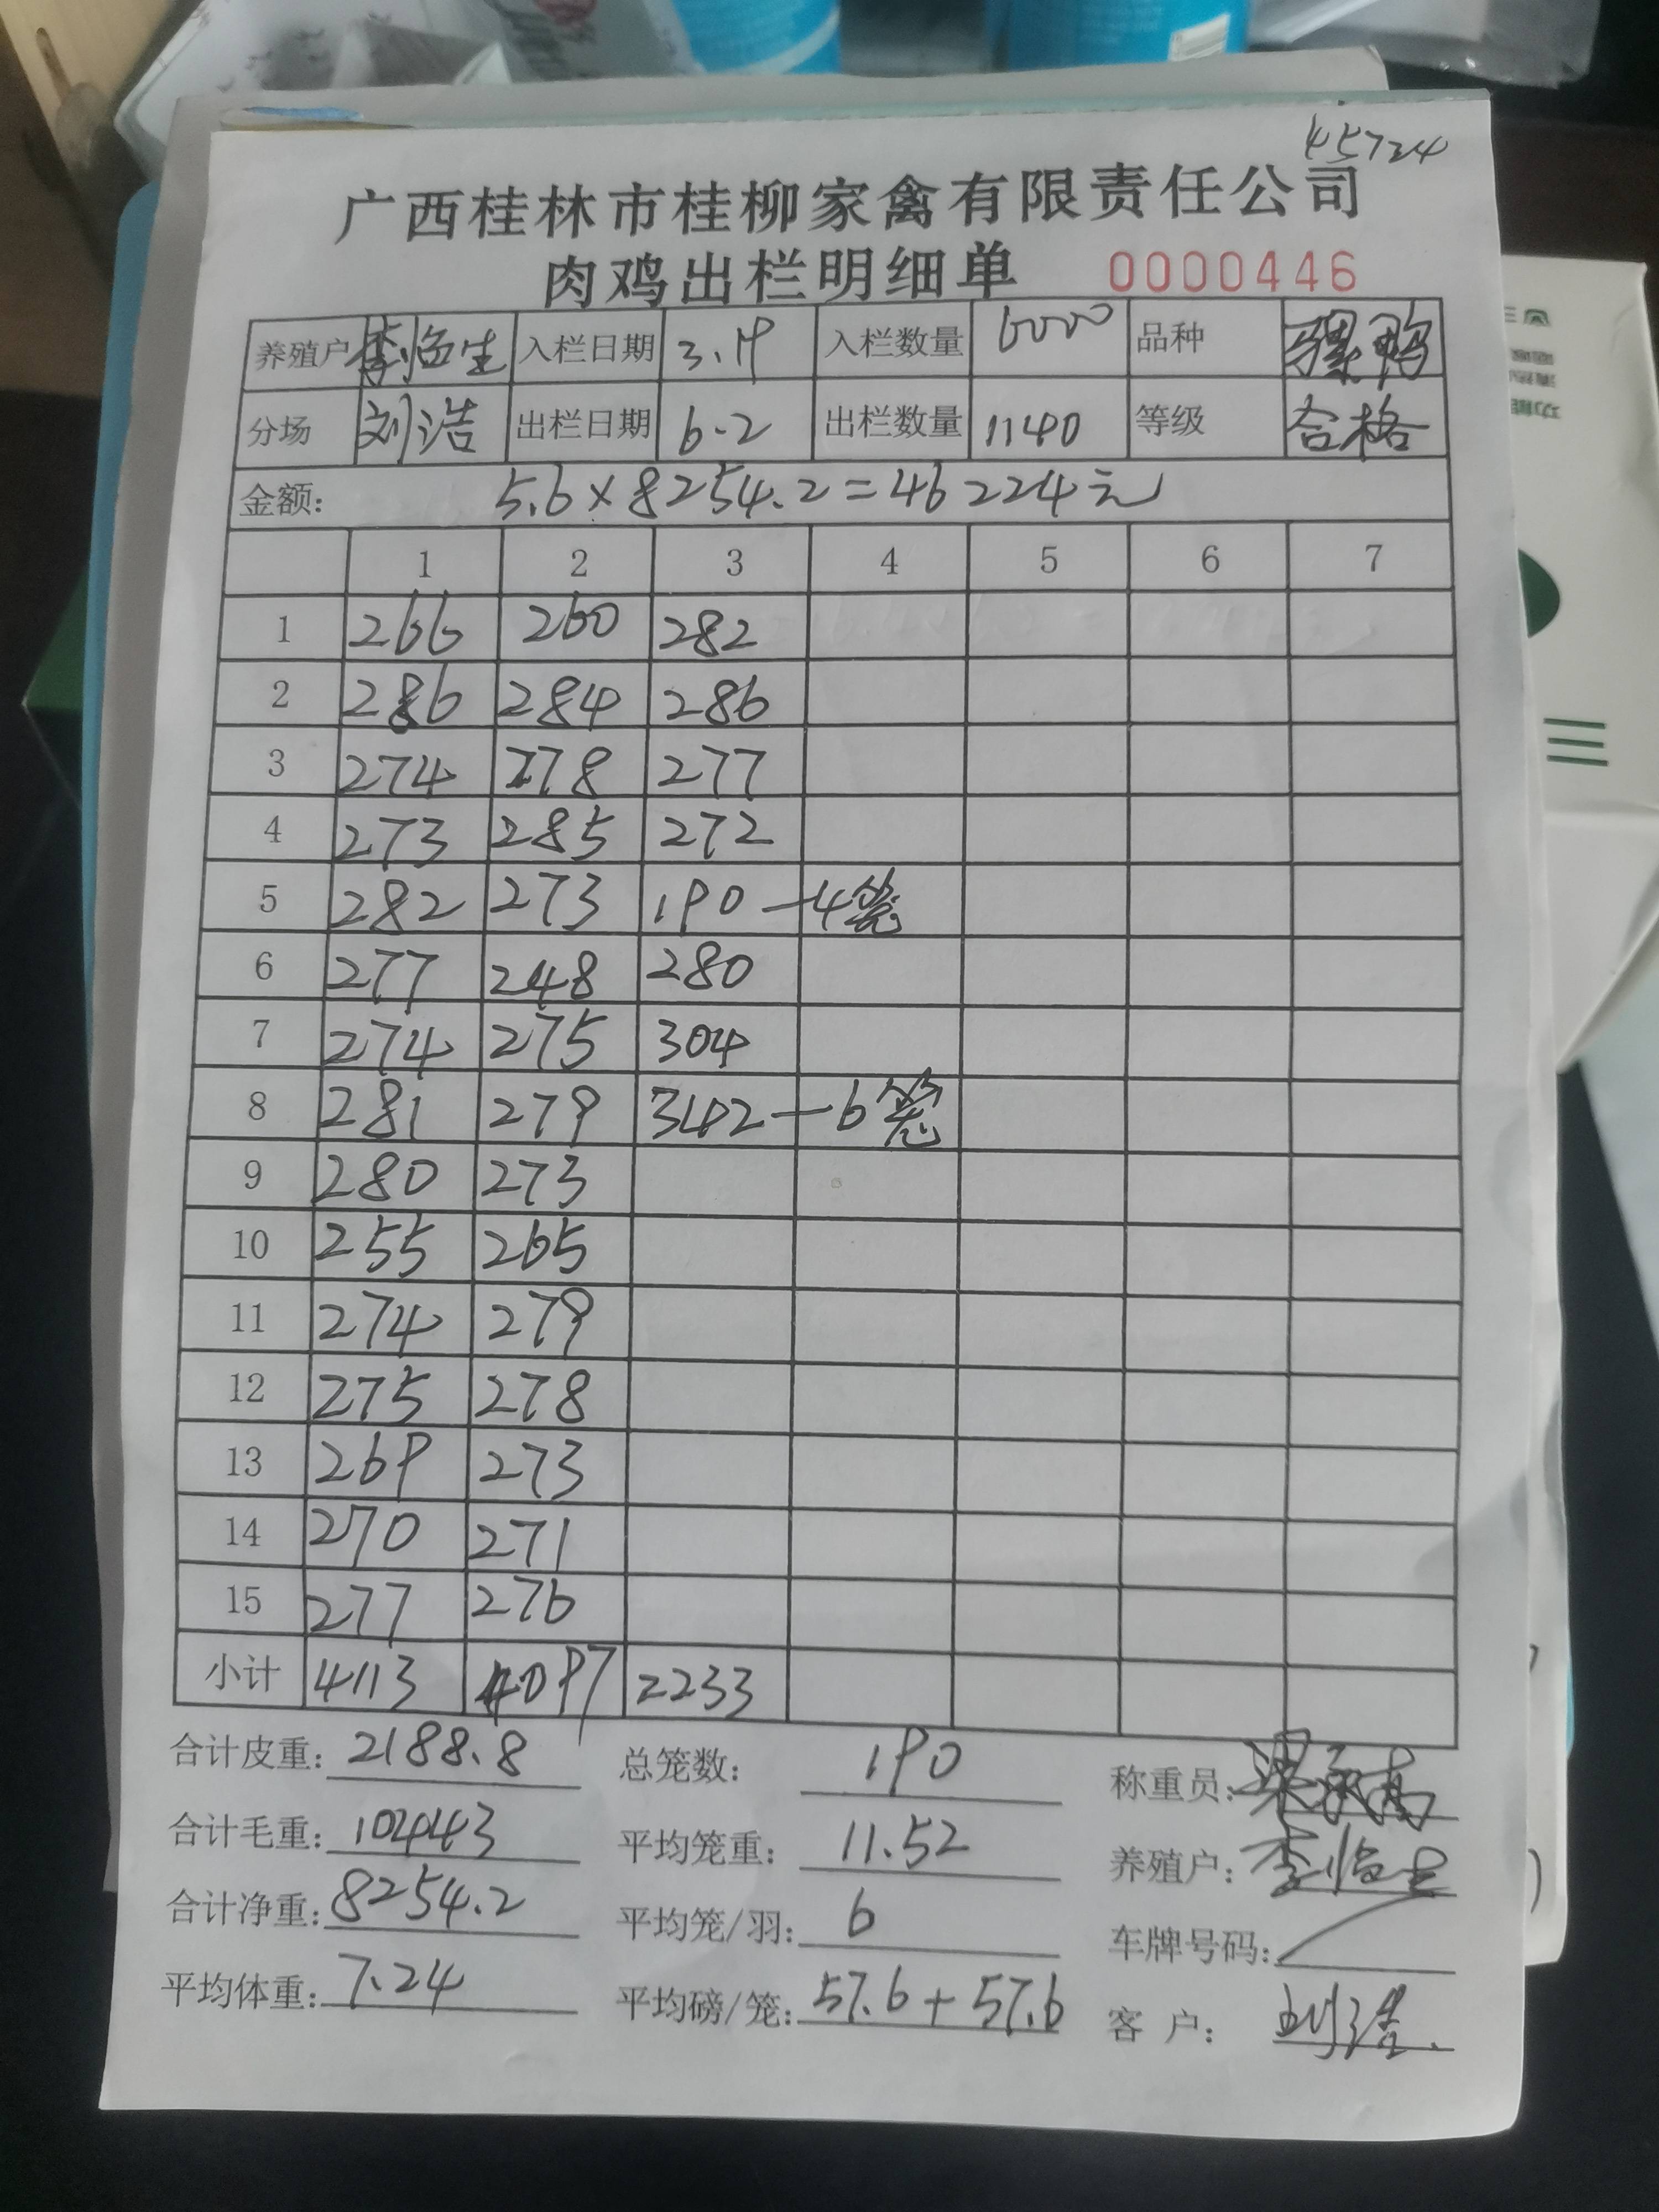 45724
广西桂林市桂柳家禽有限责任公司
肉鸡出栏明细单 0000446
养殖户 李临生 入栏日期 3.19 入栏数量 6000 品种 骡鸭
分场 刘浩 出栏日期 6.2 出栏数量 1140 等级 合格
金额: 5.6×8254.2=46224元
1 2 3 4 5 6 7
1 266 260 282
2 286 284 286
3 274 278 277
4 273 285 272
5 282 273 190 — 4笼
6 277 248 280
7 274 275 304
8 281 279 342 — 6笼
9 280 273
10 255 265
11 274 279
12 275 278
13 269 273
14 270 271
15 277 276
小计 4113 4097 2233
合计皮重: 2188.8 总笼数: 190 称重员:
合计毛重: 10443 平均笼重: 11.52 养殖户: 李临生
合计净重: 8254.2 平均笼/羽: 6 车牌号码:
平均体重: 7.24 平均磅/笼: 57.6+57.6 客 户: 刘浩